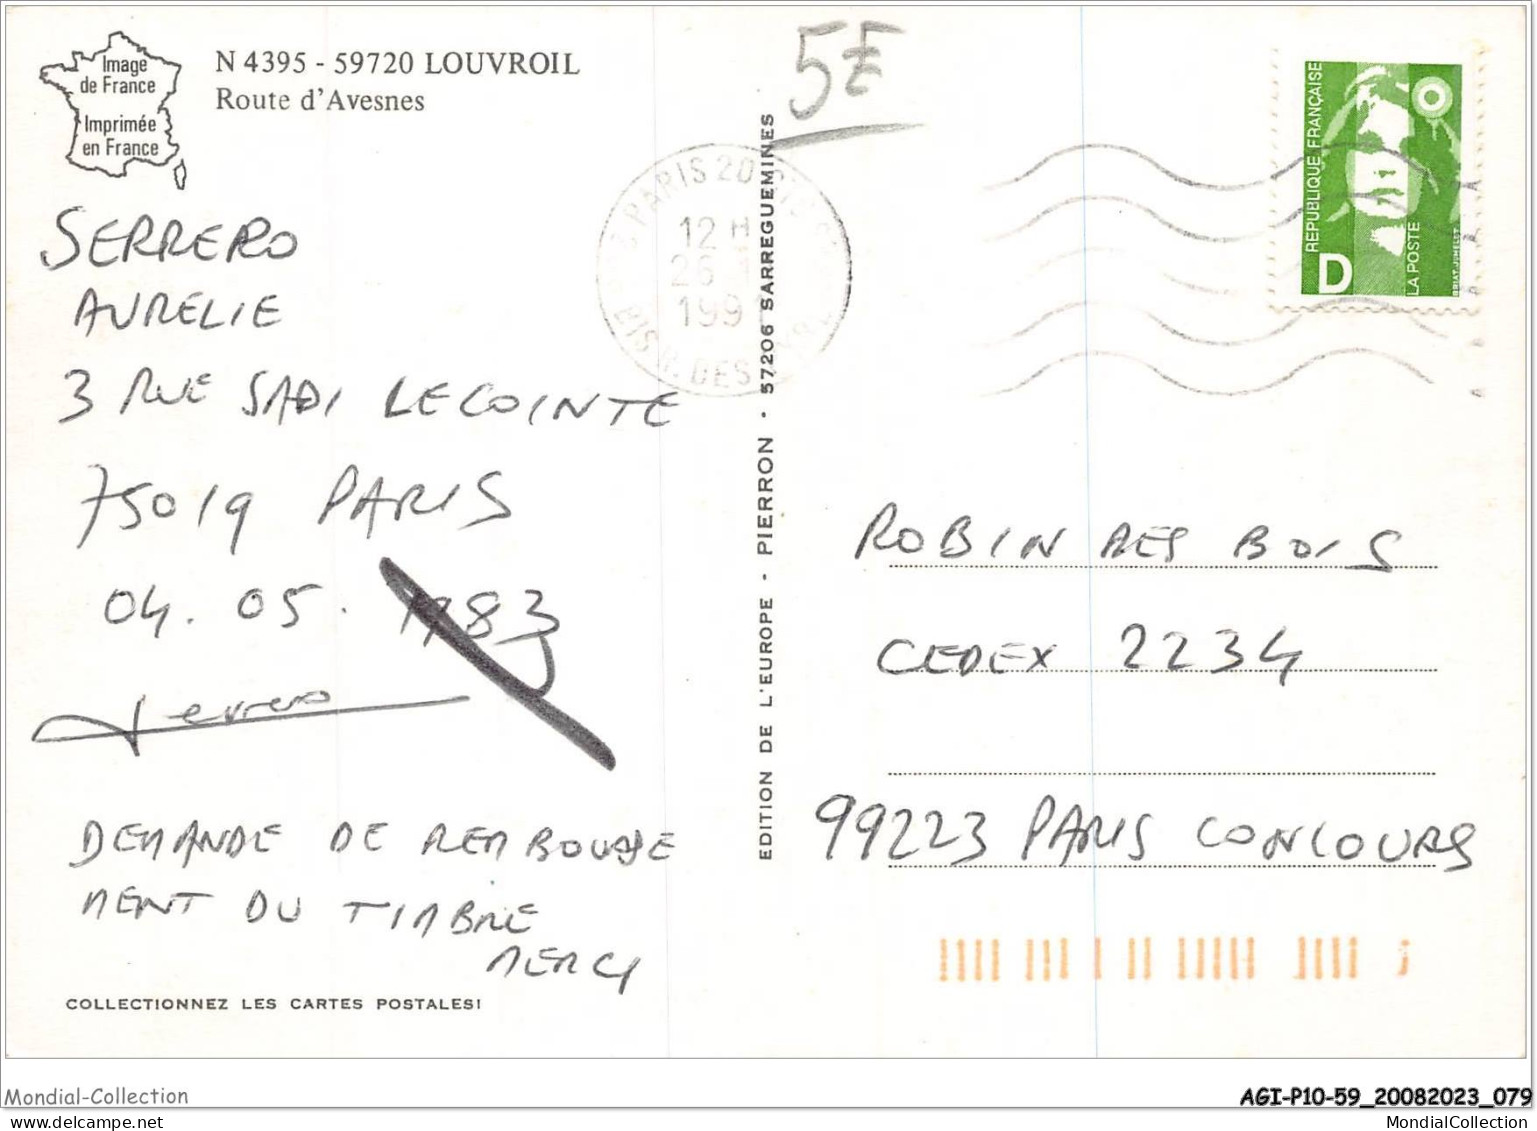 Image
de France
Imprimée
en France
N 4395 - 59720 LOUVROIL
Route d'Avesnes
SERRERO
AURELIE
3 RUE SADI LECOINTE
75019 PARIS
04. 05. 1983
Serrero
DEMANDE DE REMBOURSE
MENT DU TIMBRE
MERCI
COLLECTIONNEZ LES CARTES POSTALES!
EDITION DE L'EUROPE - PIERRON · 57206 SARREGUEMINES
5E
PARIS 20
12 H
26
199
BIS R. DES
REPUBLIQUE FRANÇAISE
D
LA POSTE
BRIAT-JUMELET
ROBIN DES BOIS
CEDEX 2234
99223 PARIS CONCOURS
Mondial-Collection
AGI-P10-59_20082023_079
MondialCollection